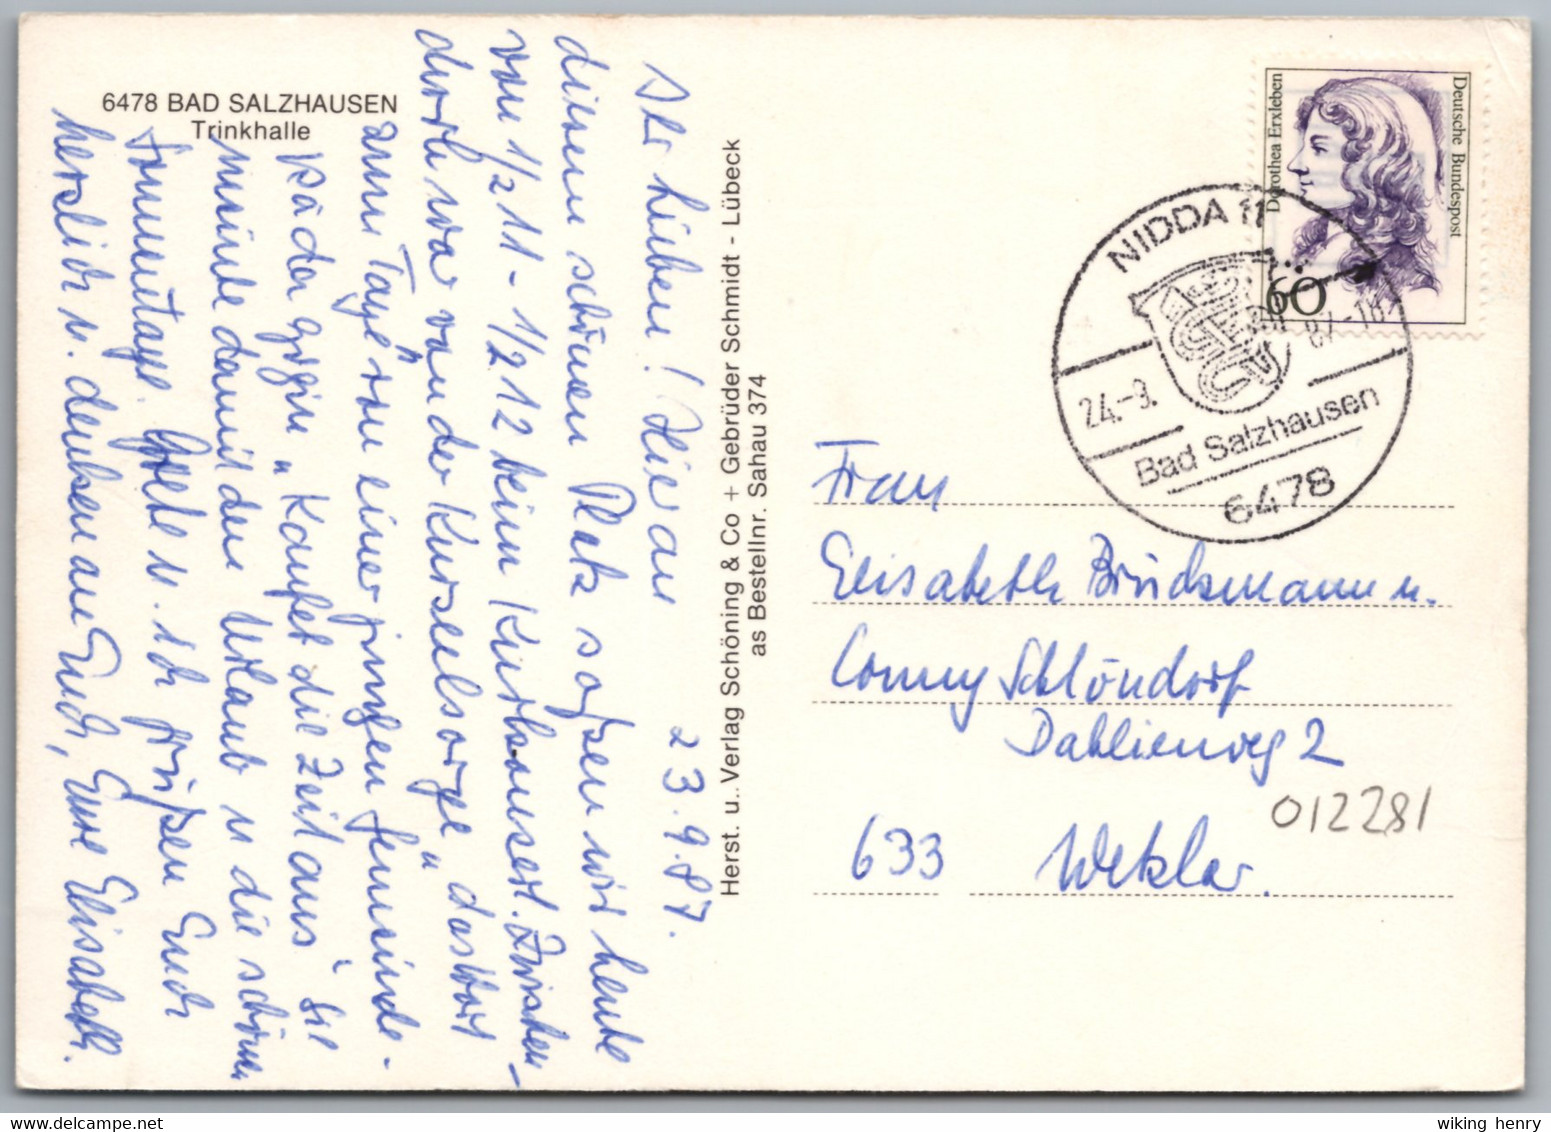 6478 BAD SALZHAUSEN
Trinkhalle
23.9.87.
Ihr Lieben! Hier an
diesem schönen Platz saßen wir heute
von 1/2 11 - 1/2 12 beim Kurkonzert. Zwischen-
durch war von der Kurseelsorge "das Wort
zum Tage" von einer jungen Gemeinde-
"Kaufet die Zeit aus" Sie
meinte damit den Urlaub u die schönen
Sonnentage. Gretel u. ich grüßen Euch
herzlich u. denken an Euch, Eure Elisabeth.
Herst. u. Verlag Schöning & Co + Gebrüder Schmidt - Lübeck
as Bestellnr. Sahau 374
Deutsche Bundespost
Dorothea Erxleben
60
NIDDA 11
24.-9. 87-10
Bad Salzhausen
6478
Frau
Elisabeth Brücksmann u.
Conny Schlöndorf
Dahlienweg 2
012281
633 Wetzlar.
wiking henry